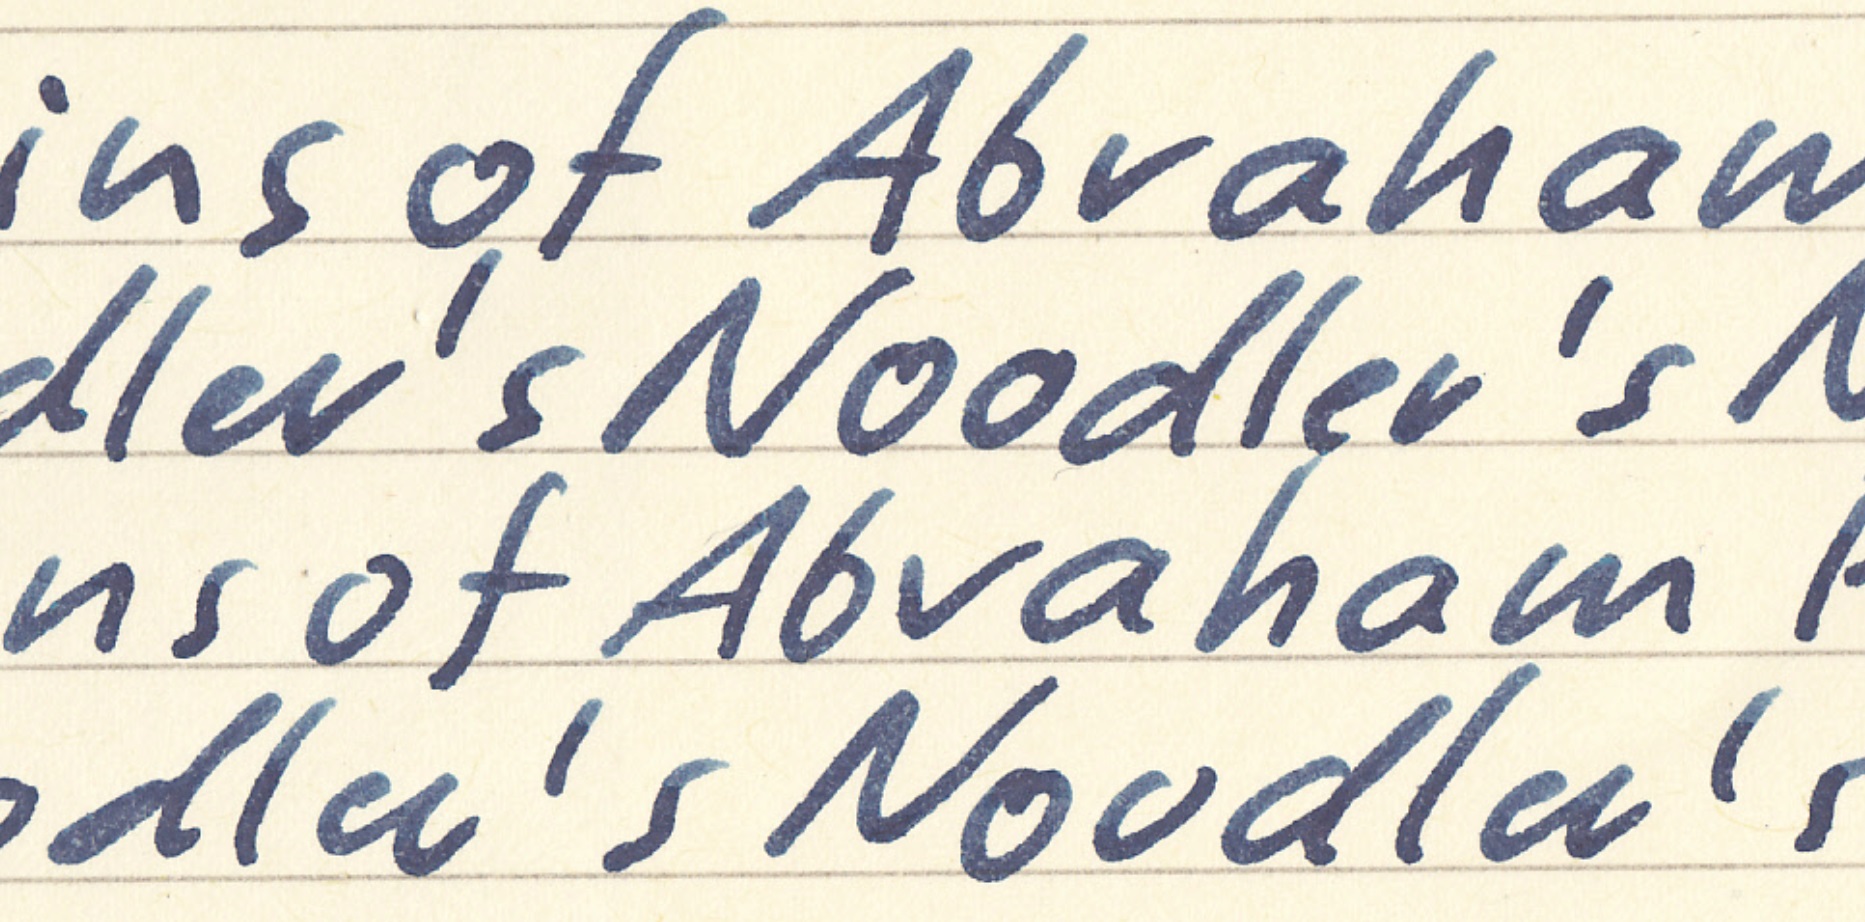 ins of Abraham
dler's Noodler's N
ns of Abraham
odler's Noodler's